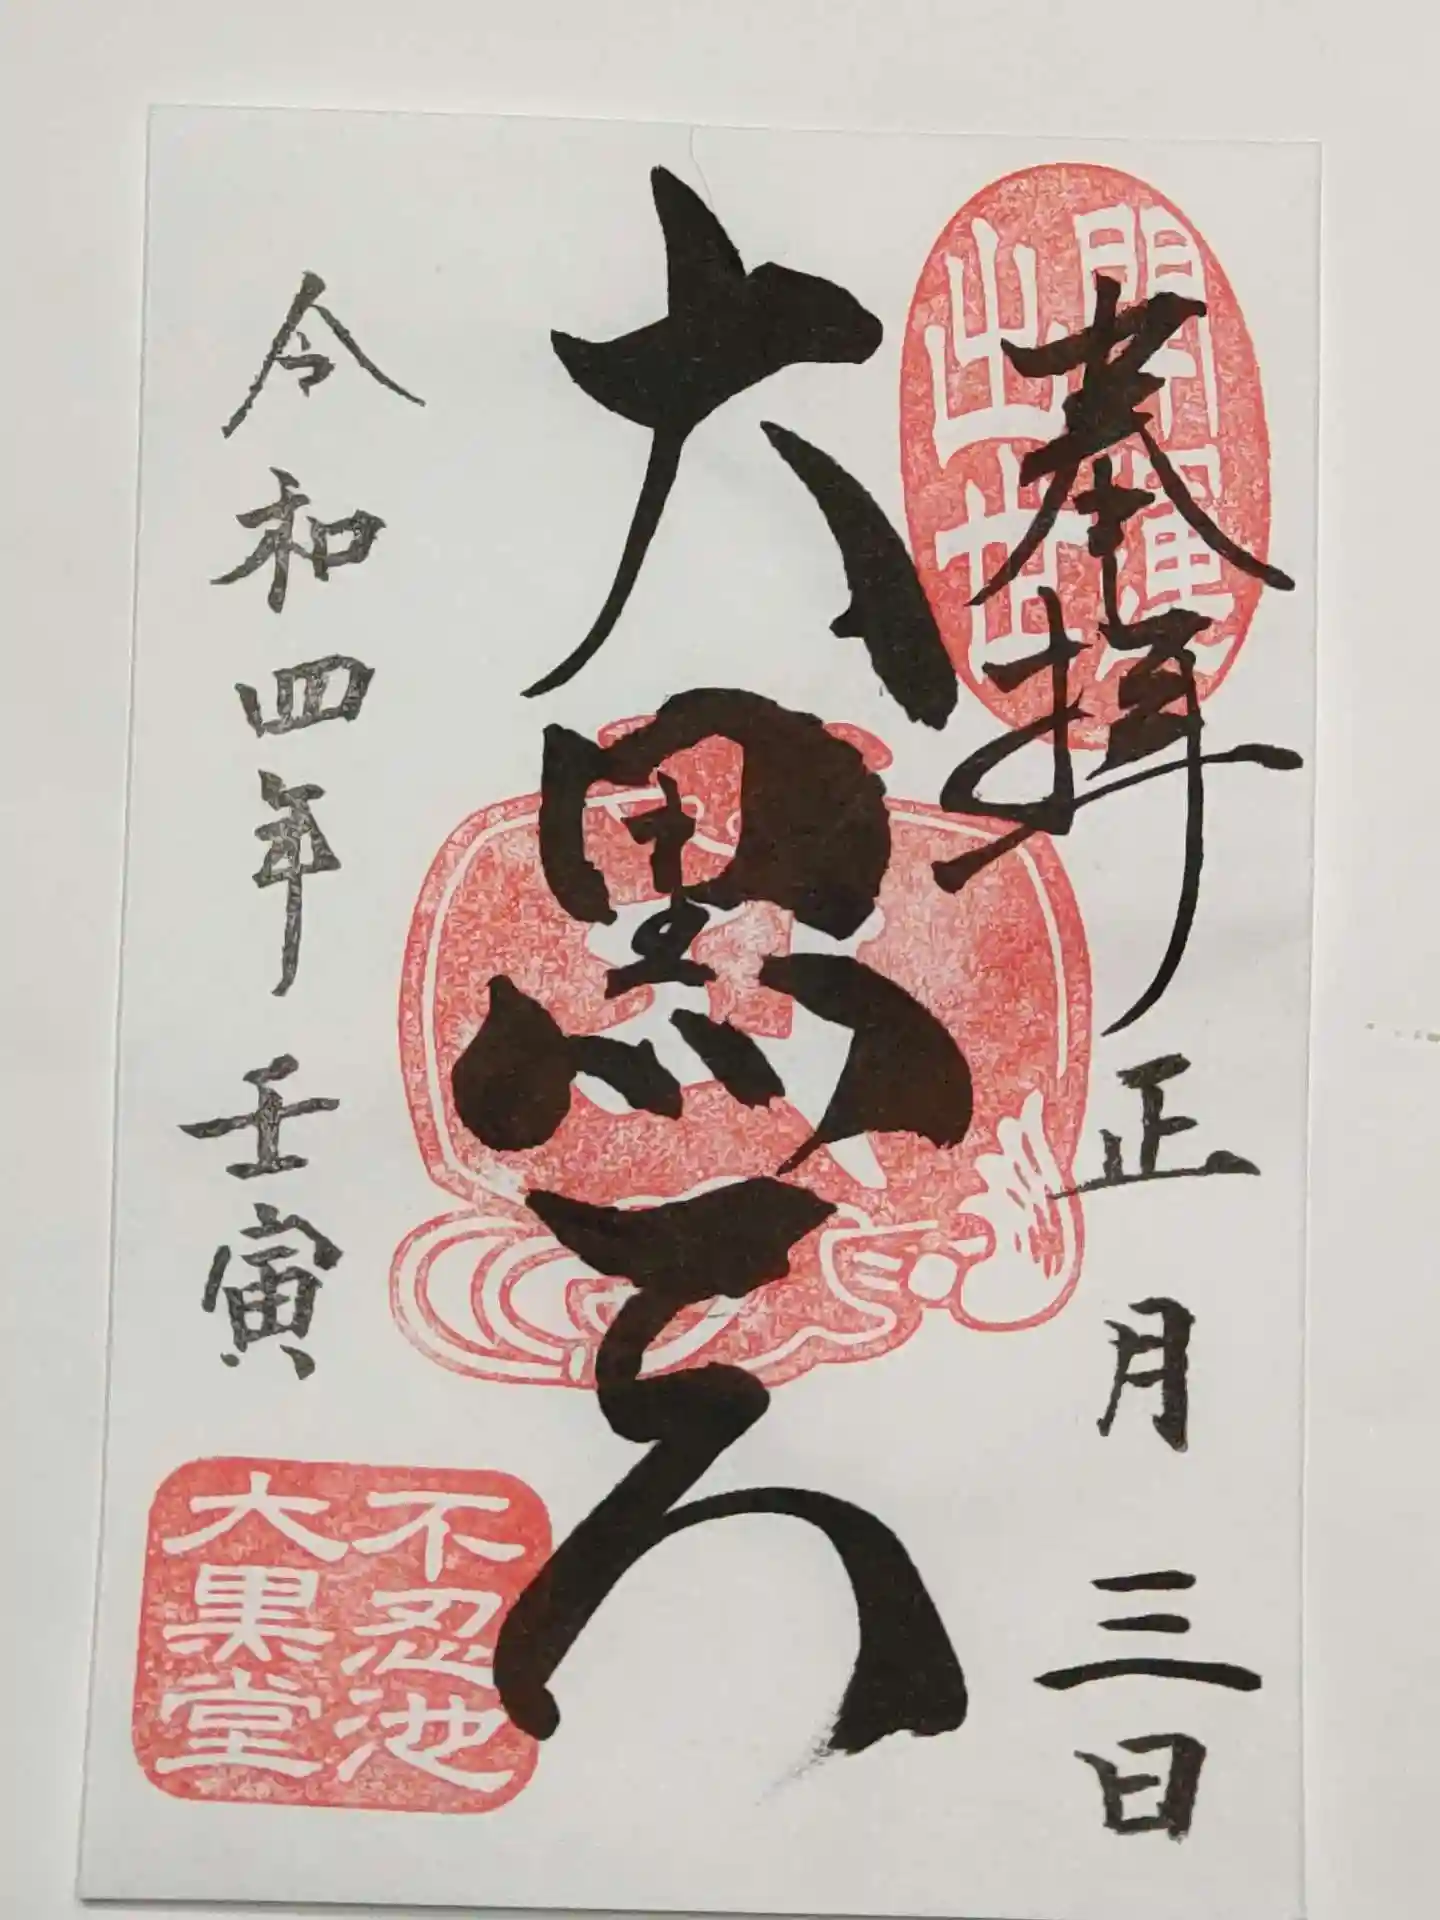 奉拝 正月三日
開運
出世
大黒天
令和四年 壬寅
不忍池
大黒堂